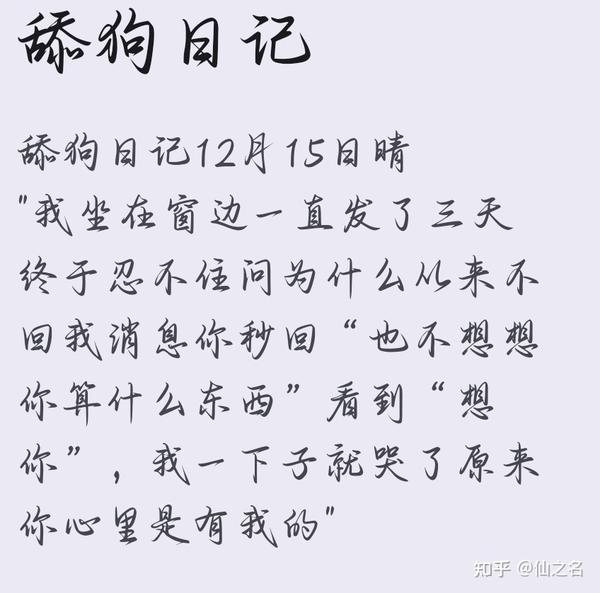 舔狗日记
舔狗日记12月15日晴
"我坐在窗边一直发了三天
终于忍不住问为什么从来不
回我消息你秒回“也不想想
你算什么东西”看到“想
你”，我一下子就哭了原来
你心里是有我的"
知乎 @仙之名